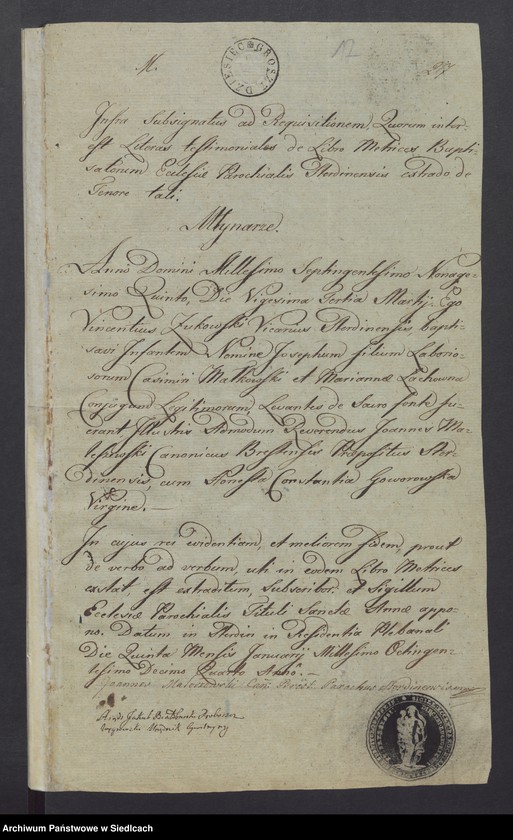 M.
DZIESIEC GROSZY
Infra Subsignatus ad Requisitionem Quorum inter-
est Literas testimoniales de Libro Metrices Bapti
satorum Eclesiæ Parochialis Sterdinensis extrado de
Tenore tali.
Młynarze.
Anno Domini Millesimo Septingentesimo Nonage-
simo Quinto, Die Vigesima Tertia Martij. Ego
Vincentius Żukowski Vicarius Sterdinensis, bapti-
savi Infantem Nomine Josephum filium Laborio-
sorum Casimiri Małkowski et Mariannæ
Conjugum Legitimorum, Levantes de Sacro fonte fu-
erant, Illustris Admodum Reverendus Joannes Ma-
Canonicus Brestensis Præpositus Ster-
dinensis, cum Honesta Constantia Goworowska
Virgine.
In cujus rei evidentiam, et meliorem fidem, prout
de verbo ad verbum, uti in eodem Libro Metrices
extat, est extraditum, subscribor, et Sigillum
Ecclesiæ Parochialis Tituli Sanctæ Annæ appo-
no. Datum in Sterdin in Residentia Plebanali
Die Quinta Mensis Januarij Millesimo Octingen-
tesimo Decimo Quarto Anno.
Joannes Can: Brest: Parochus Sterdinensis
Jakub
Urzędnik Cywilny
Archiwum Państwowe w Siedlcach